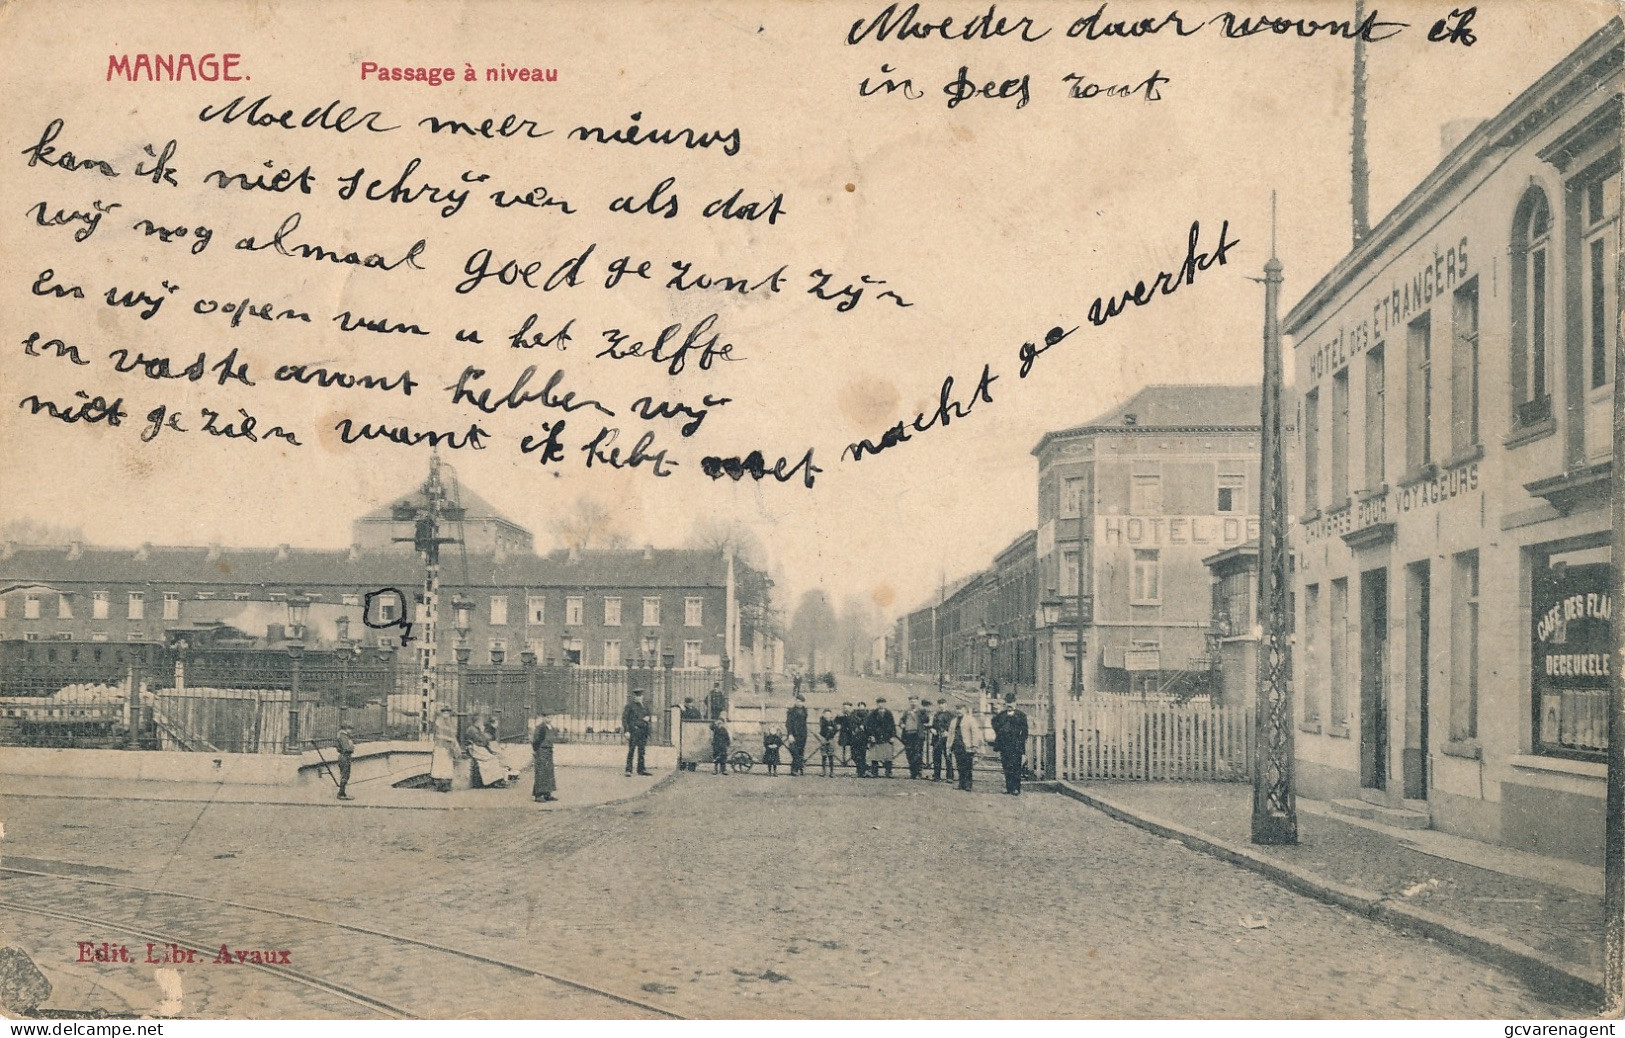 Moeder daar woont ik
in Dees zont
MANAGE.
Passage à niveau
Moeder meer nieuws
kan ik niet schrijven als dat
wij nog almaal goed ge zont zijn
en wij oopen van u het zelffe
en vaste avont hebben wij
niet ge zien want ik hebt met nacht ge werkt
HÔTEL DES ÉTRANGERS
CHAMBRES POUR VOYAGEURS
HOTEL DE
CAFÉ DES FLA
DEGEUKELE
Edit. Libr. Avaux
www.delcampe.net
gcvarenagent